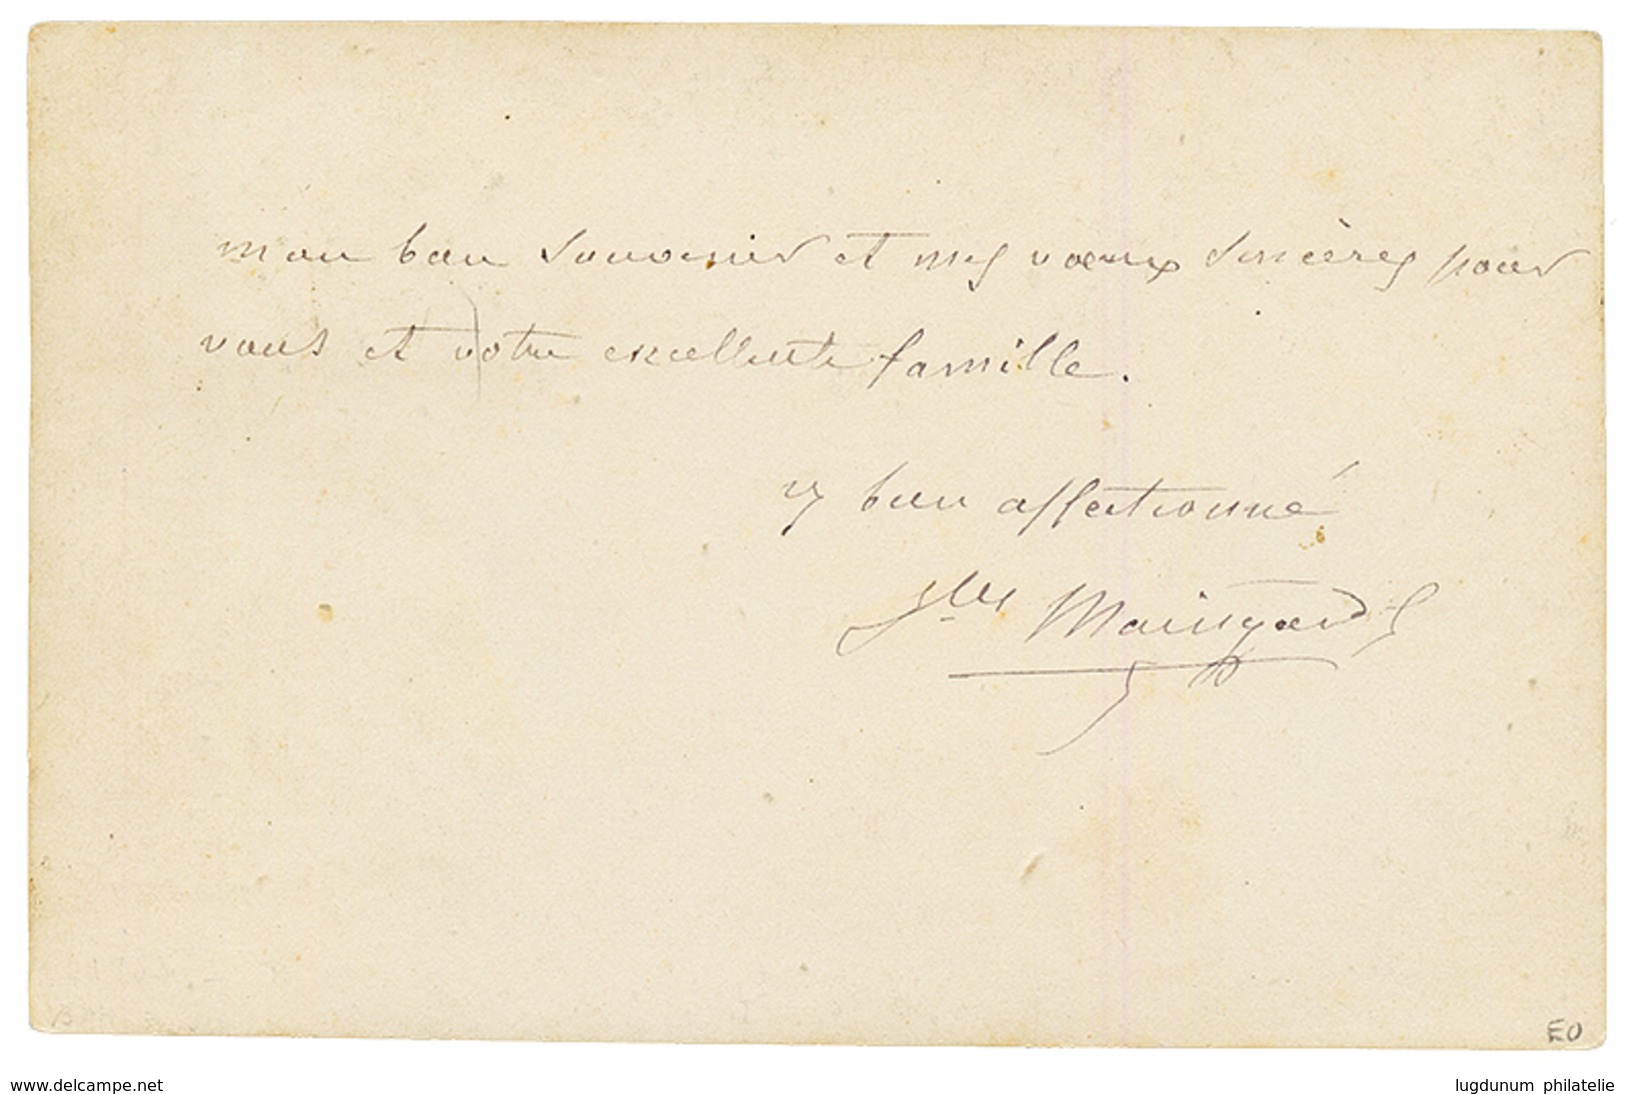 mon bon souvenir et mes vœux sincères pour
vous et votre excellente famille.
bien affectionné
Maingard
EO
www.delcampe.net
lugdunum philatelie